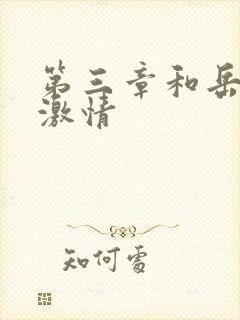 第三章和岳
激情
知何處